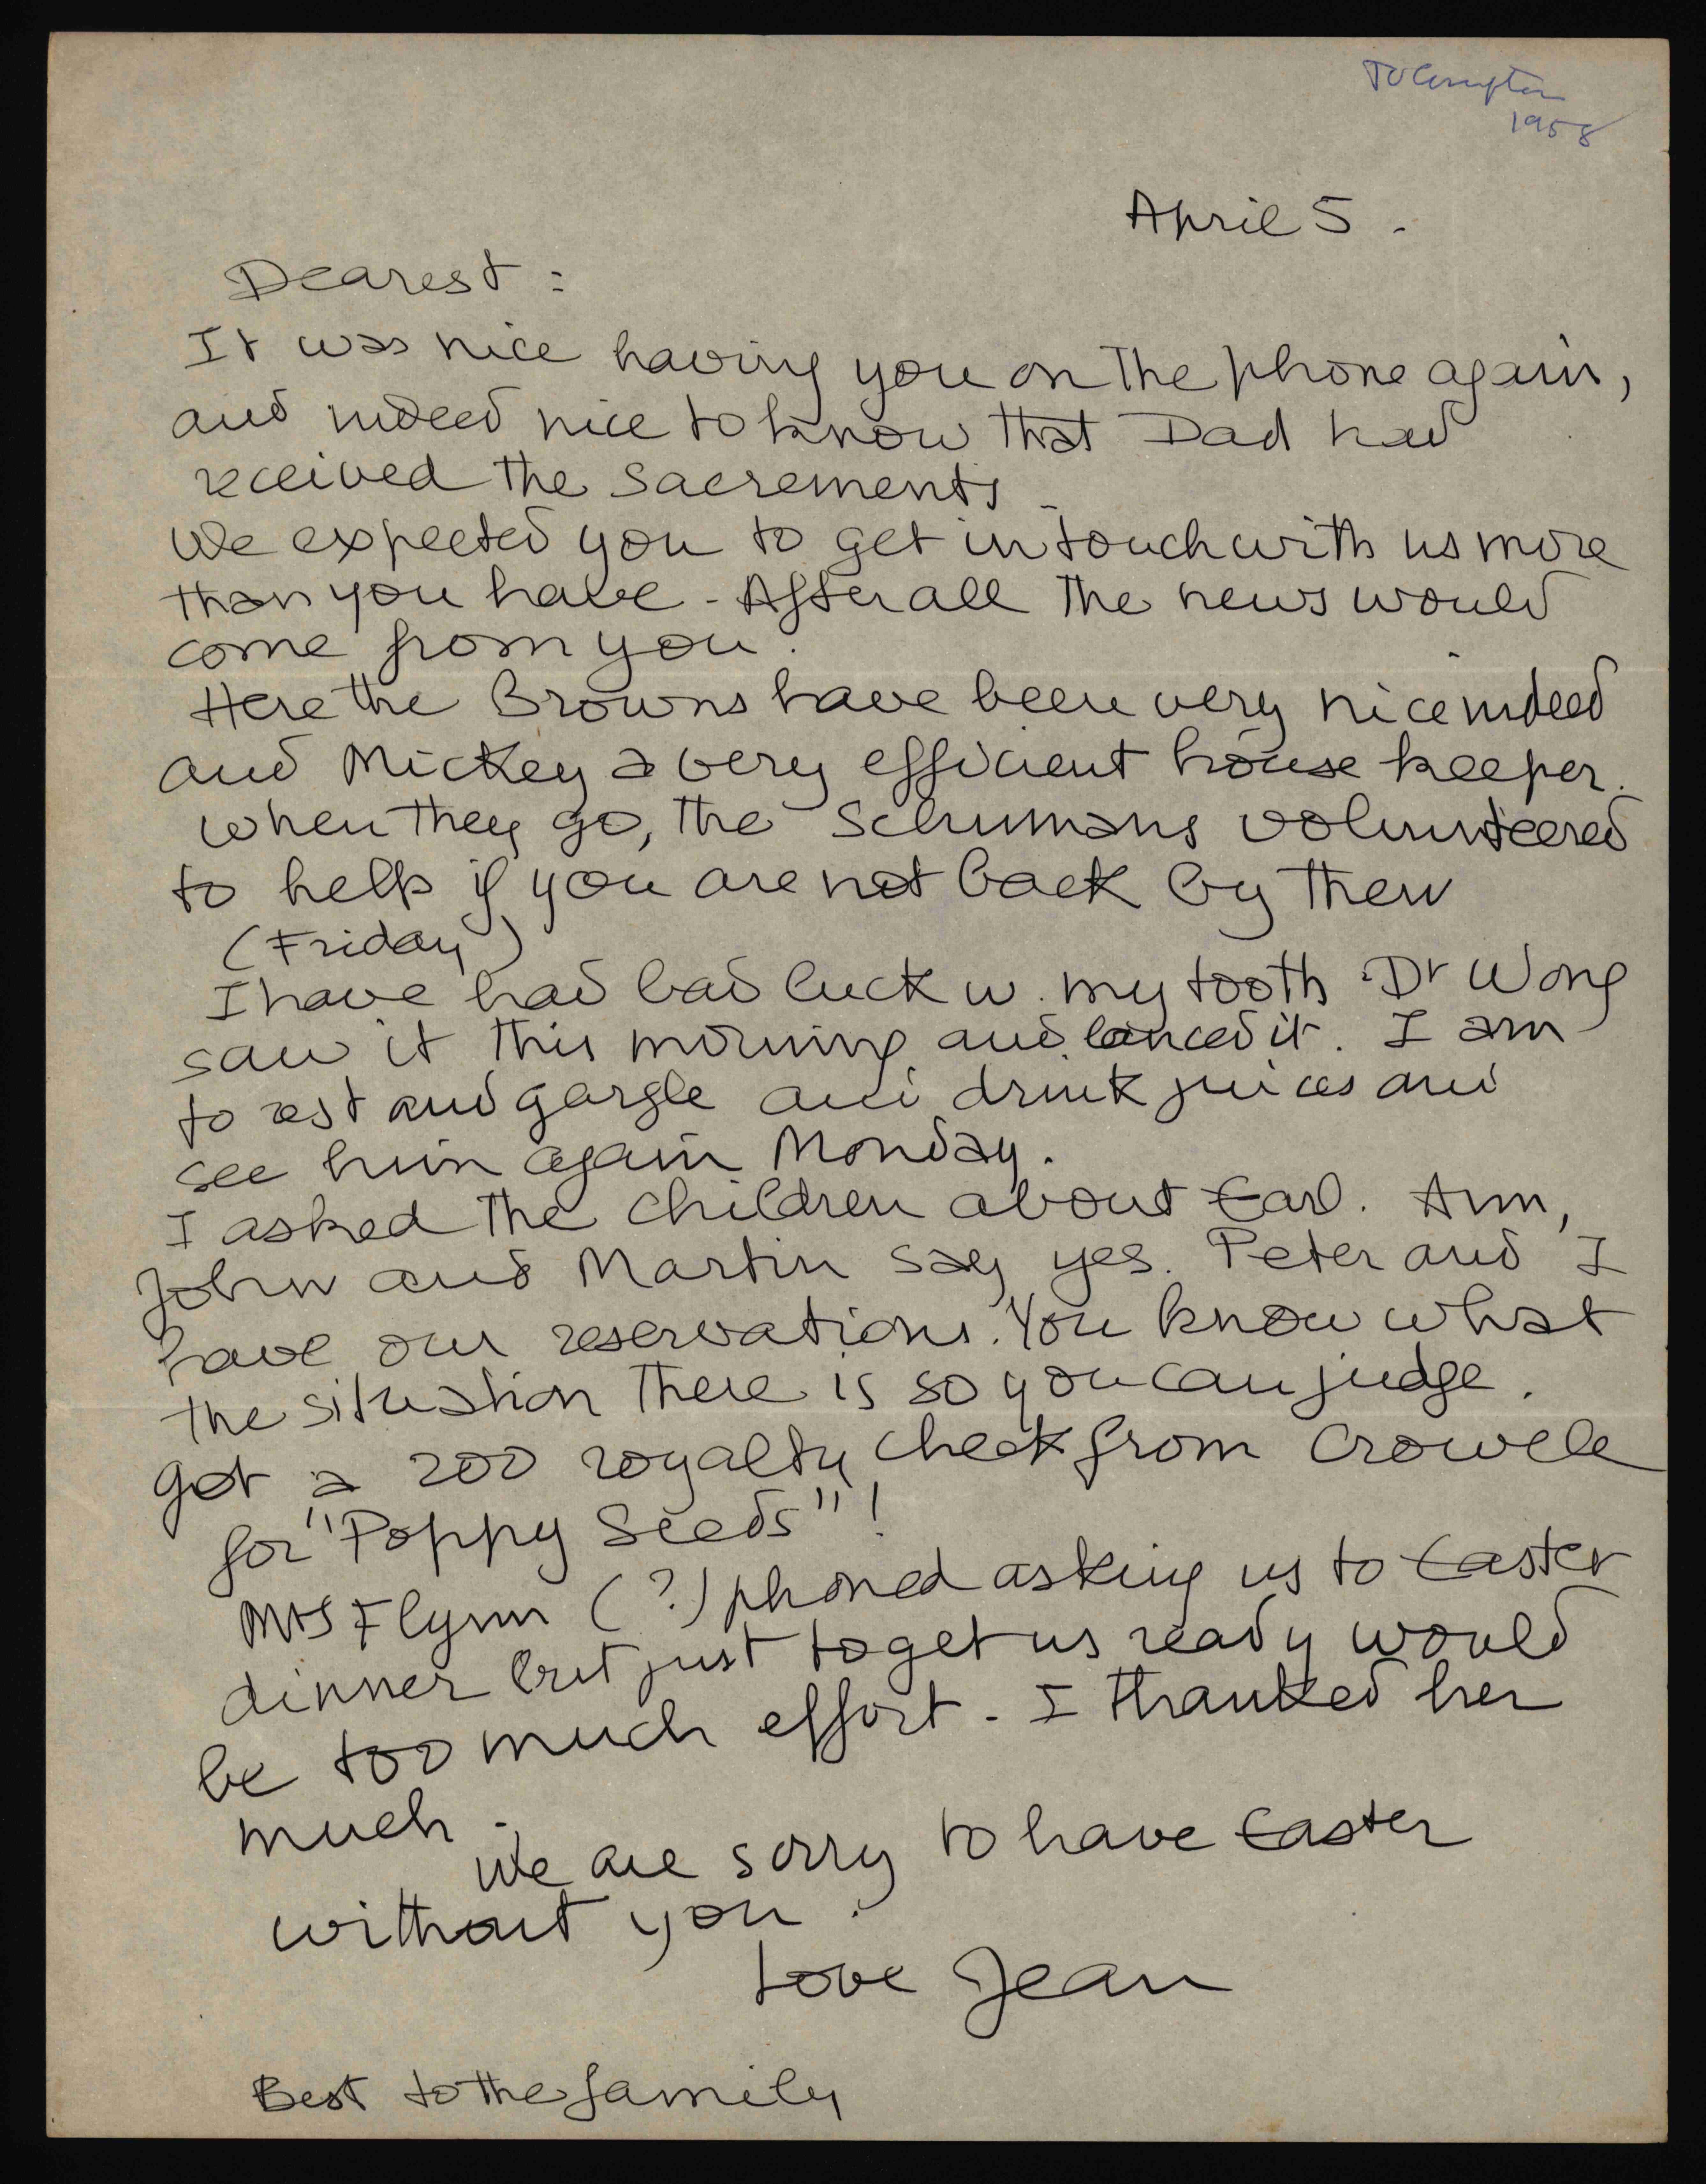 To Compton
1958
April 5.
Dearest:
It was nice having you on the phone again,
and indeed nice to know that Dad had
received the Sacrements.
We expected you to get in touch with us more
than you have - After all the news would
come from you.
Here the Browns have been very nice indeed
and Mickey a very efficient house keeper.
When they go, the Schumans volunteered
to help if you are not back by then
(Friday)
I have had bad luck w. my tooth. Dr Wong
saw it this morning and lanced it. I am
to rest and gargle and drink juices and
see him again Monday.
I asked the children about Earl. Ann,
John and Martin say yes. Peter and I
have our reservations. You know what
the situation there is so you can judge.
Got a 200 royalty check from Crowell
for "Poppy Seeds"!
Mrs Flynn (?) phoned asking us to Easter
dinner but just to get us ready would
be too much effort - I thanked her
much.
We are sorry to have Easter
without you.
Love Jean
Best to the family